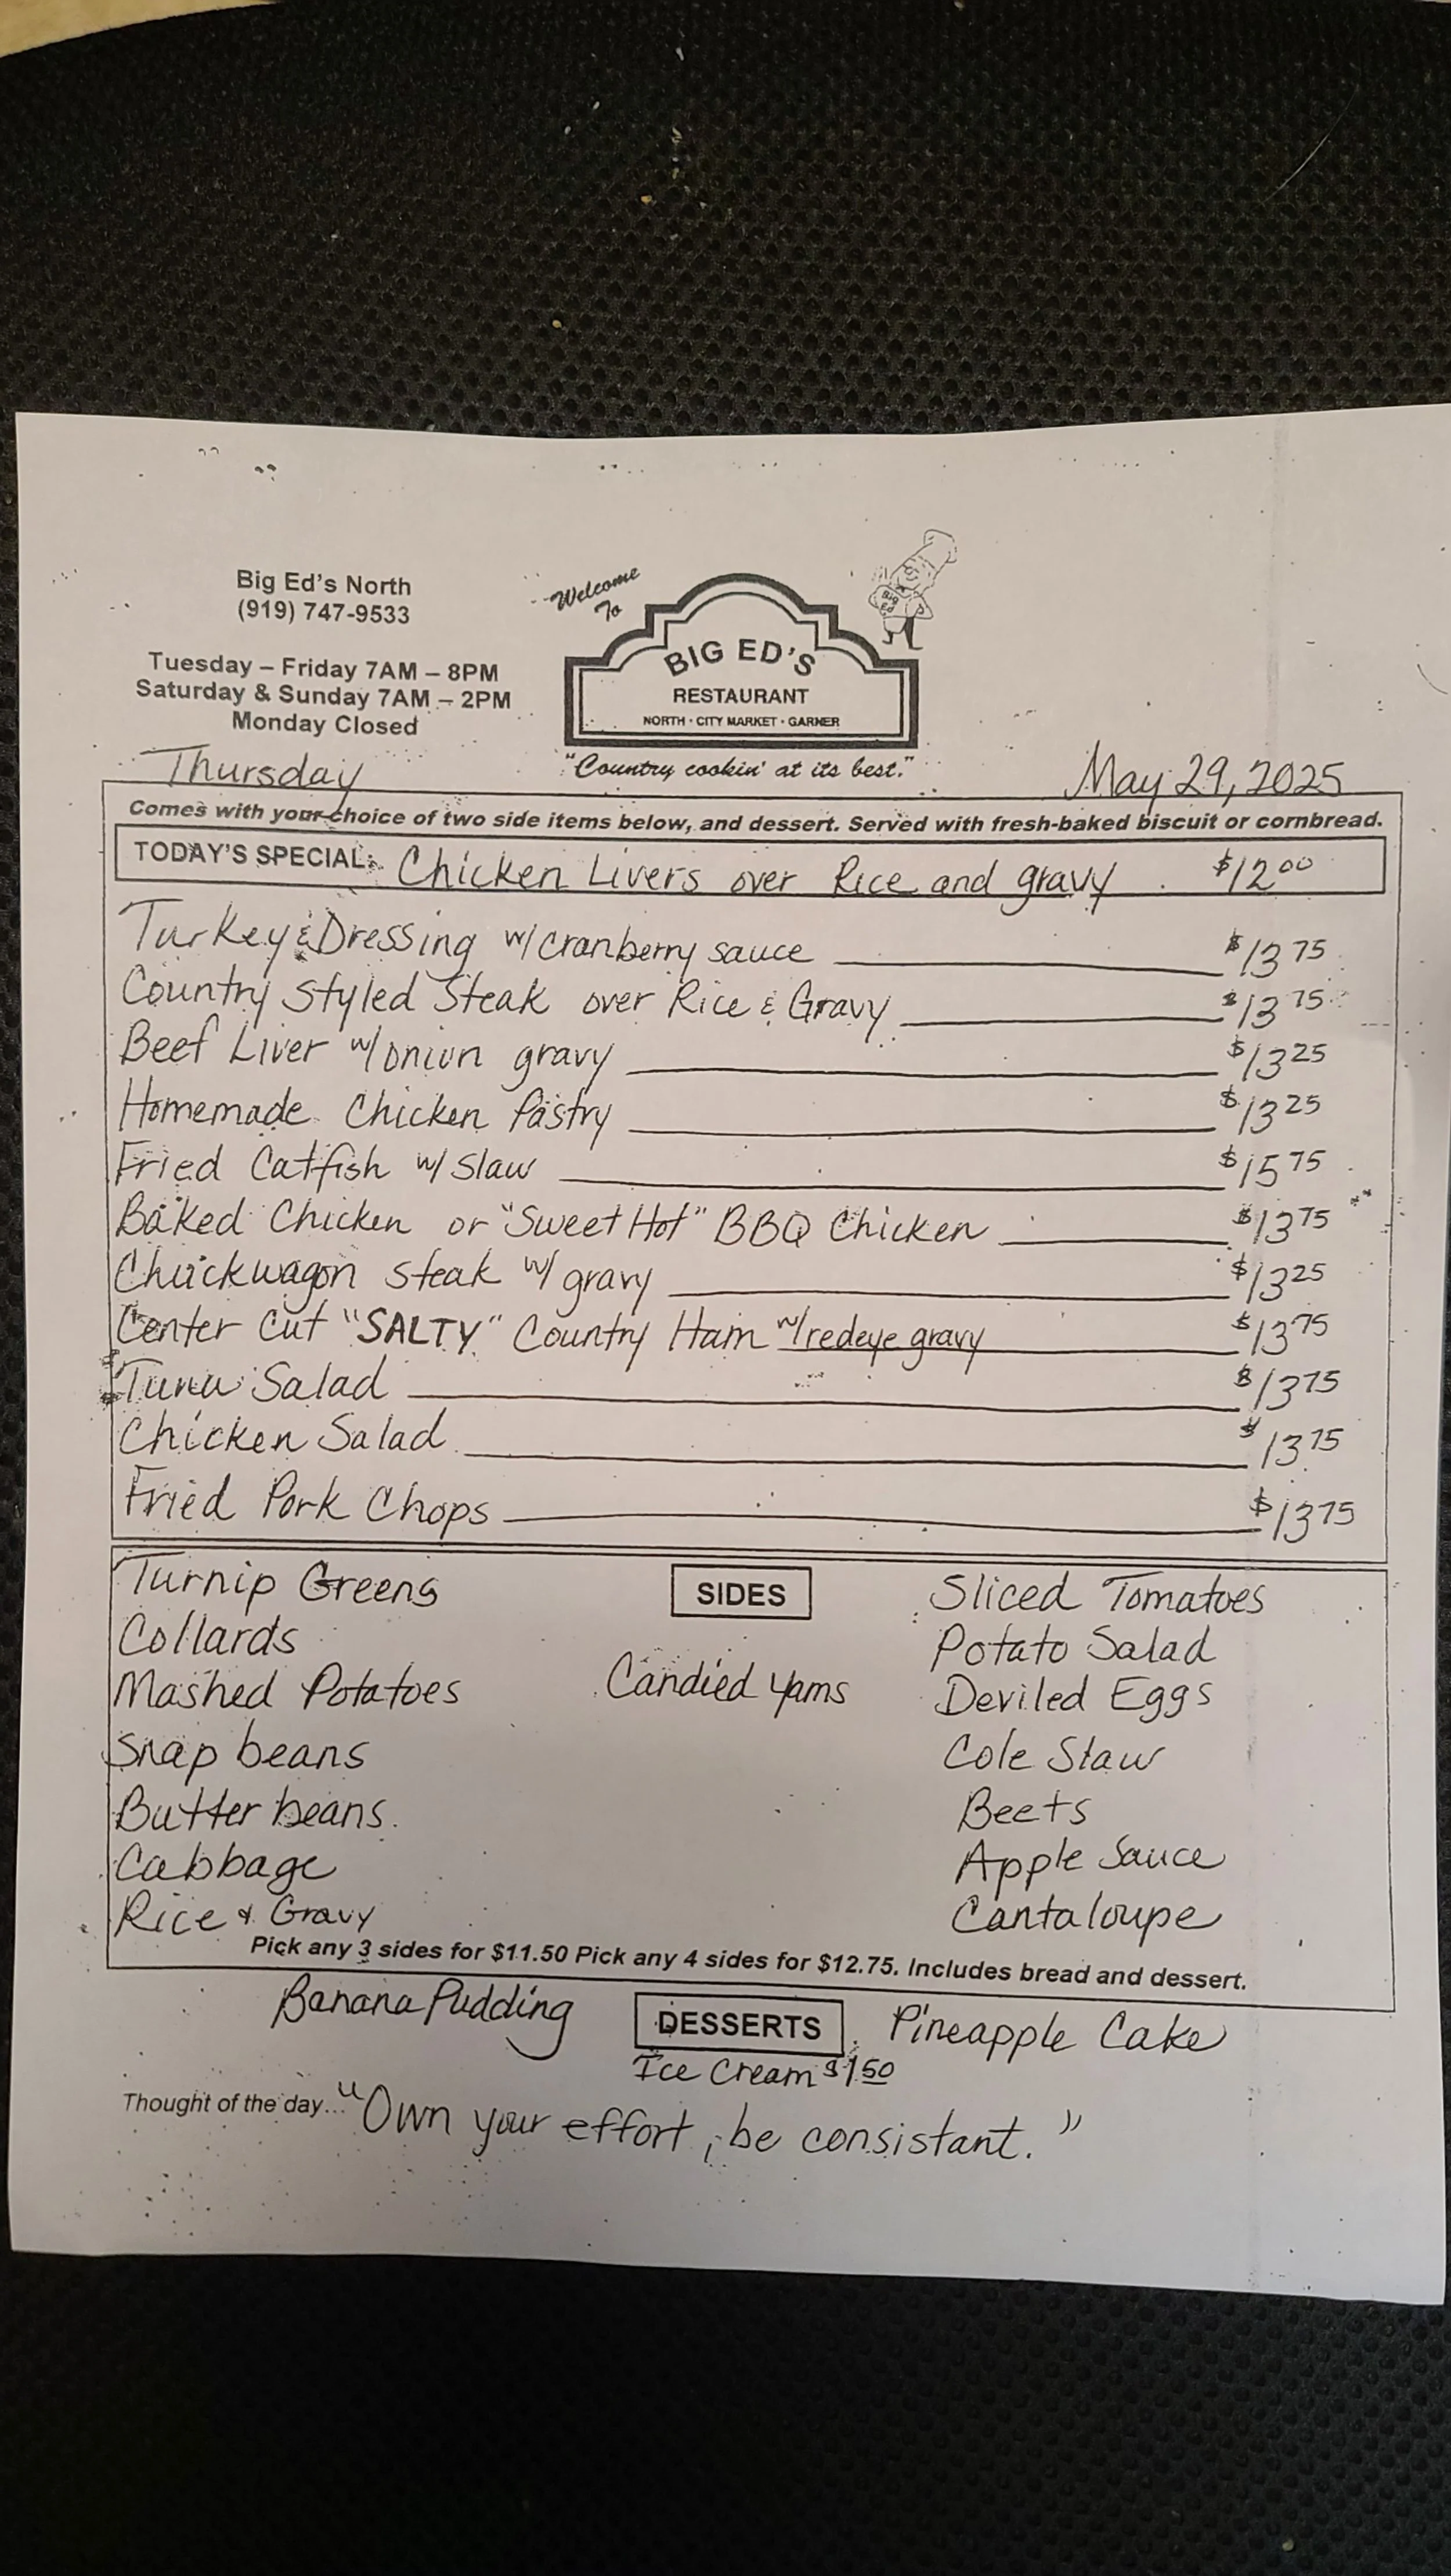 Big Ed's North
(919) 747-9533
Tuesday – Friday 7AM – 8PM
Saturday & Sunday 7AM – 2PM
Monday Closed
Welcome
To
BIG ED'S
RESTAURANT
NORTH · CITY MARKET · GARNER
Big
Ed
"Country cookin' at its best."
Thursday May 29, 2025
Comes with your choice of two side items below, and dessert. Served with fresh-baked biscuit or cornbread.
TODAY'S SPECIAL: Chicken Livers over Rice and gravy $12.00
Turkey & Dressing w/ cranberry sauce $13.75
Country Styled Steak over Rice & Gravy $13.75
Beef Liver w/ onion gravy $13.25
Homemade Chicken Pastry $13.25
Fried Catfish w/ Slaw $15.75
Baked Chicken or "Sweet Hot" BBQ Chicken $13.75
Chuckwagon steak w/ gravy $13.25
Center Cut "SALTY" Country Ham w/ redeye gravy $13.75
Tuna Salad $13.75
Chicken Salad $13.75
Fried Pork Chops $13.75
SIDES
Turnip Greens
Collards
Mashed Potatoes
Snap beans
Butter beans
Cabbage
Rice & Gravy
Candied Yams
Sliced Tomatoes
Potato Salad
Deviled Eggs
Cole Slaw
Beets
Apple Sauce
Cantaloupe
Pick any 3 sides for $11.50 Pick any 4 sides for $12.75. Includes bread and dessert.
Banana Pudding DESSERTS Pineapple Cake
Ice Cream $1.50
Thought of the day... "Own your effort, be consistant."